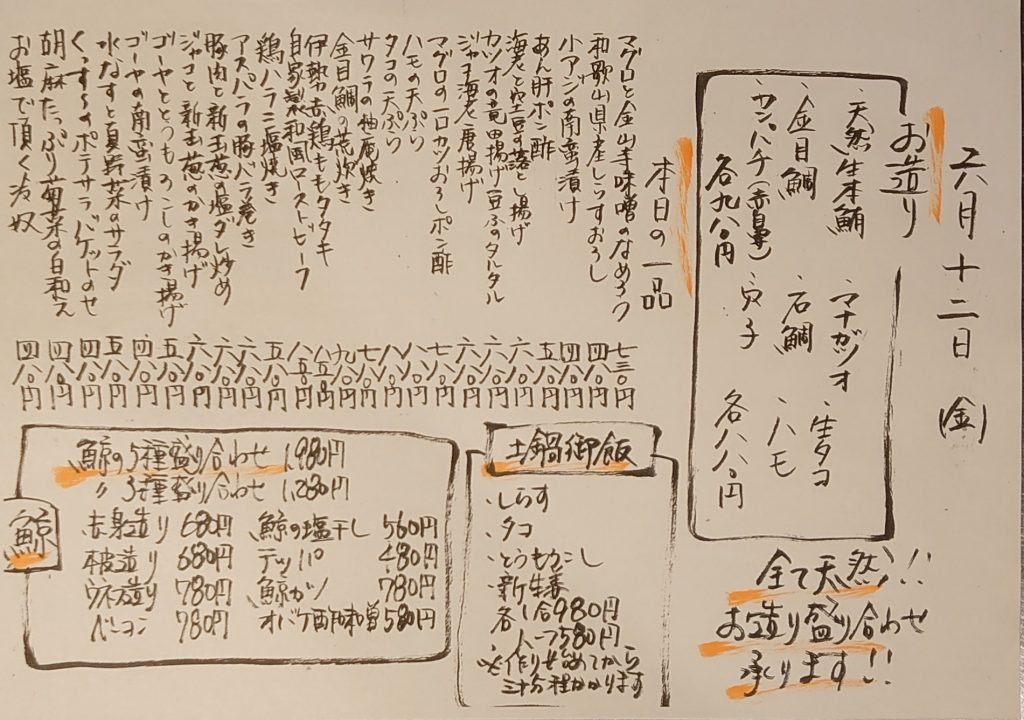 六月十二日(金)
お造り
・天然生本鮪
・金目鯛
・カンパチ(赤身等)
各九八〇円
・マナガツオ
・石鯛
・穴子
・生タコ
・ハモ
各八八〇円
全て天然!!
お造り盛り合わせ
承ります!!
本日の一品
マグロと金山寺味噌のなめろう 七三〇円
和歌山県産しらすおろし 四八〇円
小アジの南蛮漬け 四八〇円
あん肝ポン酢 五八〇円
海老と空豆の落とし揚げ 六八〇円
カツオの竜田揚げ 豆ふのタルタル 六八〇円
ジャコ海老唐揚げ 六八〇円
マグロの一口カツおろしポン酢 七八〇円
ハモの天ぷら 八八〇円
タコの天ぷら 八八〇円
サワラの柚庵焼き 七八〇円
金目鯛の荒炊き 九八〇円
伊勢赤鶏ももタタキ 八五〇円
自家製和風ローストビーフ 八五〇円
鶏ハラミ塩焼き 五八〇円
アスパラの豚バラ巻き 六八〇円
豚肉と新玉葱の塩ダレ炒め 六八〇円
ジャコと新玉葱のかき揚げ 六八〇円
ゴーヤととうもろこしのかき揚げ 五八〇円
ゴーヤの南蛮漬け 四八〇円
水なすと夏野菜のサラダ 五八〇円
くんすけのポテサラ バケットのせ 四八〇円
胡麻たっぷり菊菜の白和え 四八〇円
お塩で頂く冷奴 四八〇円
土鍋御飯
・しらす
・タコ
・とうもろこし
・新生姜
各1合980円
ハーフ580円
※作り始めてから
三十分程かかります
鯨
鯨の5種盛り合わせ 1,980円
〃3種盛り合わせ 1,280円
赤身造り 680円 鯨の塩干し 560円
本皮造り 680円 テッパ 480円
ウネ造り 780円 鯨ガツ 780円
ベーコン 780円 オバケ酢味噌 580円